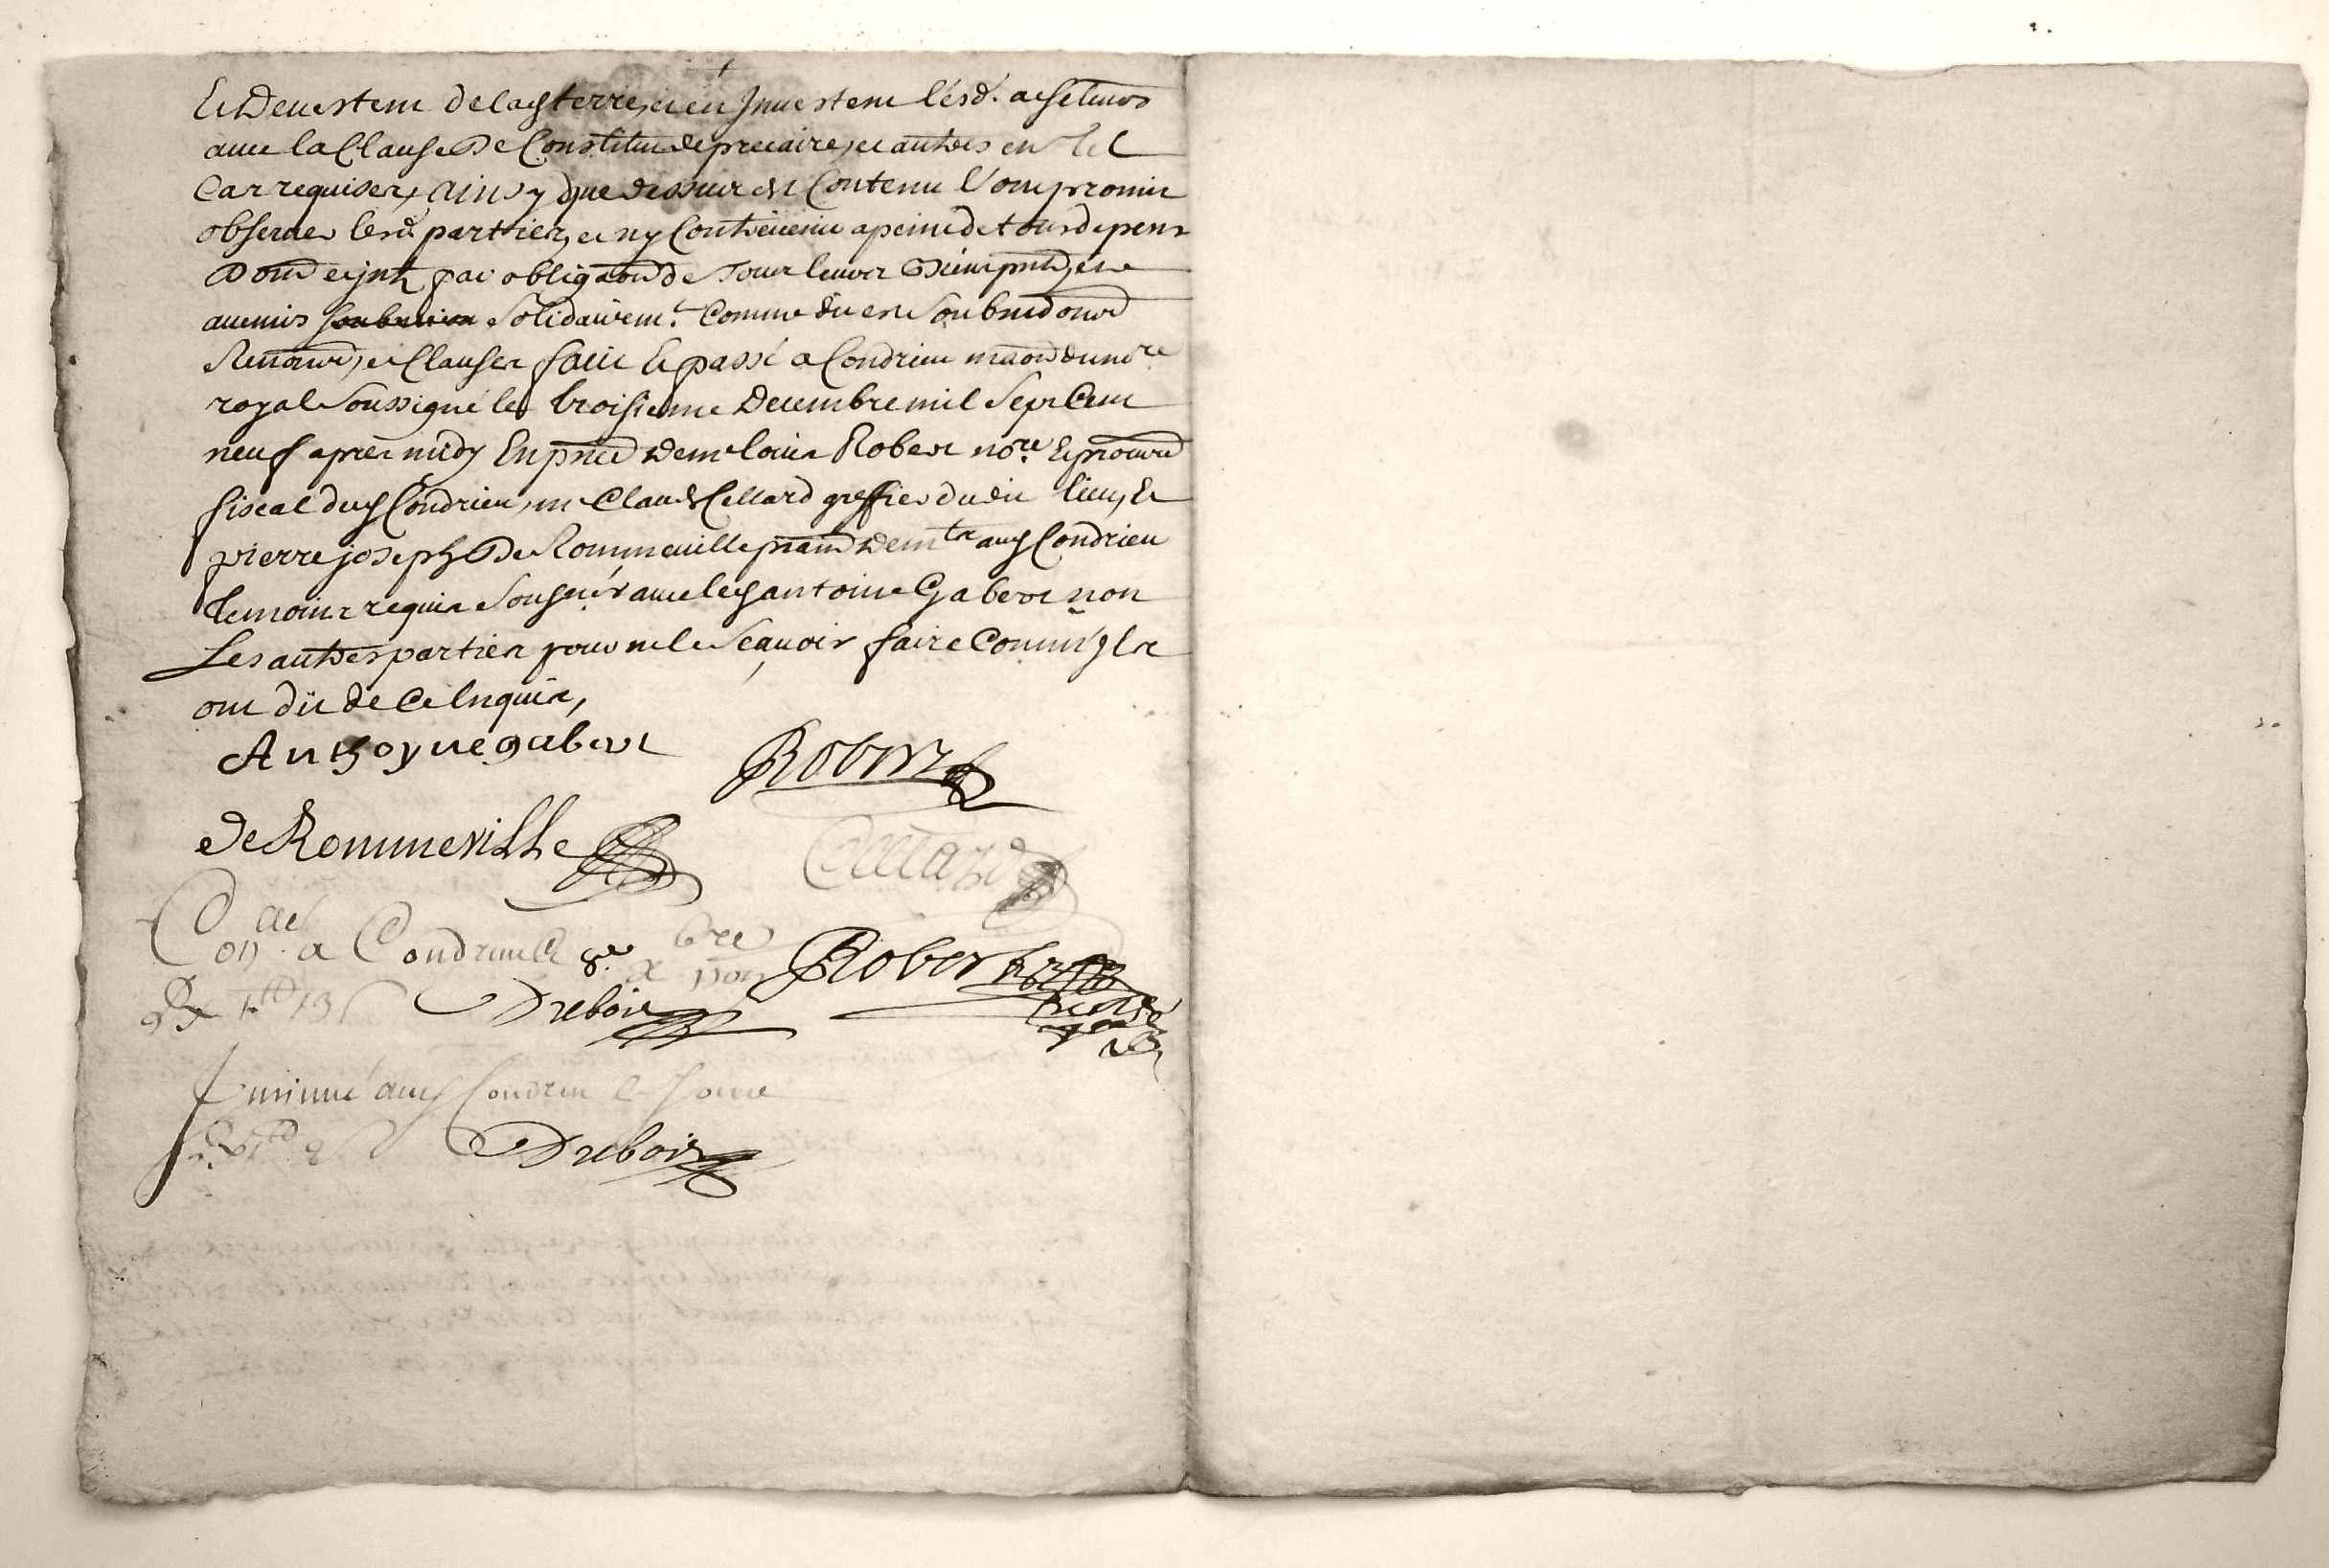 Et Devestent de lad terre, et en Jnvestent lesd. acheteurs
avec la Clause De Constitut de precaire, et autres en tel
Cas requises, ainsy que dessus est Contenu L'ont promis
observer lesd parties, et ny Contrevenir a peine de tous depens
Dom et jnts par obligaon de Tous leurs Biens pnts, et a
avenirs solidairemt. Comme dit est Soubmions
Renons, et Clauses fait Et passé a Condrieu maon du nore
royal Soussigné le troisieme Decembre mil Sept Cent
neuf apres midy En pnce de me louis Robert nore Et procur
fiscal dud Condrieu, me Claude Cellard greffier dudit lieu, Et
pierre joseph De Rommeville prand dem tr aud Condrieu
temoins requis Soubsnes avec led antoine Gabert non
Les autres parties pour ne le Scavoir faire Comm'Jls
ont dit de Ce Enquis,
Anthoyne gabert
Robert
de Rommeville
Cellard
Con a Condrieu le 8e Xbre
1709
Robert
Dubois
Jnsinué aud Condrieu le
Dubois